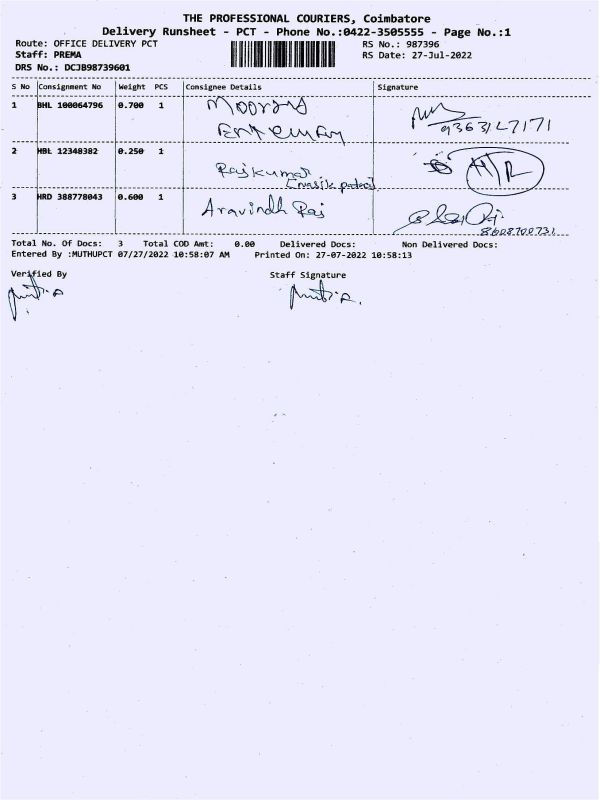 THE PROFESSIONAL COURIERS, Coimbatore
Delivery Runsheet - PCT - Phone No.:0422-3505555 - Page No.:1
Route: OFFICE DELIVERY PCT RS No.: 987396
Staff: PREMA RS Date: 27-Jul-2022
DRS No.: DCJB98739601
S No Consignment No Weight PCS Consignee Details Signature
1 BHL 100064796 0.700 1
9363127171
2 HBL 12348382 0.250 1 Rajkumar
3 HRD 388778043 0.600 1 Aravindh Raj
8608700731
Total No. Of Docs: 3 Total COD Amt: 0.00 Delivered Docs: Non Delivered Docs:
Entered By :MUTHUPCT 07/27/2022 10:58:07 AM Printed On: 27-07-2022 10:58:13
Verified By Staff Signature